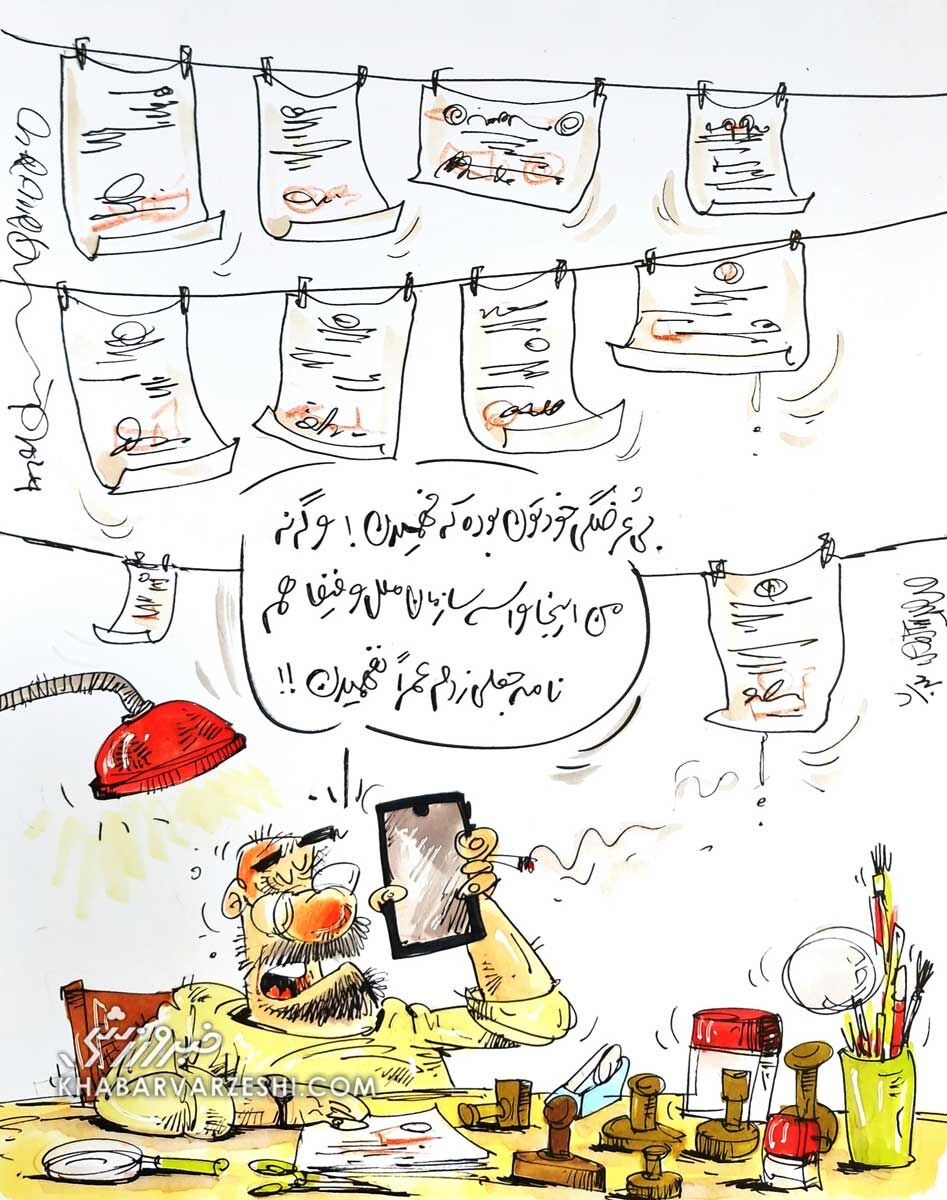 بی عُرضگی خودتون بوده که فهمیدن! وگرنه
من اینجا واسه سازمان ملل و فیفا هم
نامه جعلی زدم عمراً نفهمیدن!!
خبرورزشی
KHABARVARZESHI.COM